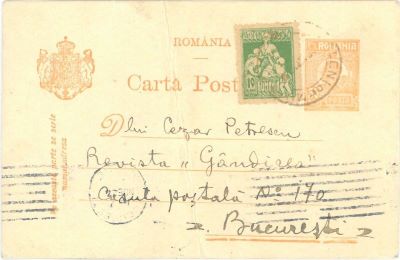 ROMÂNIA
Carta Post
ROMANIA
Dlui Cezar Petrescu
Revista „Gândirea"
Căsuța poștală No 170
București